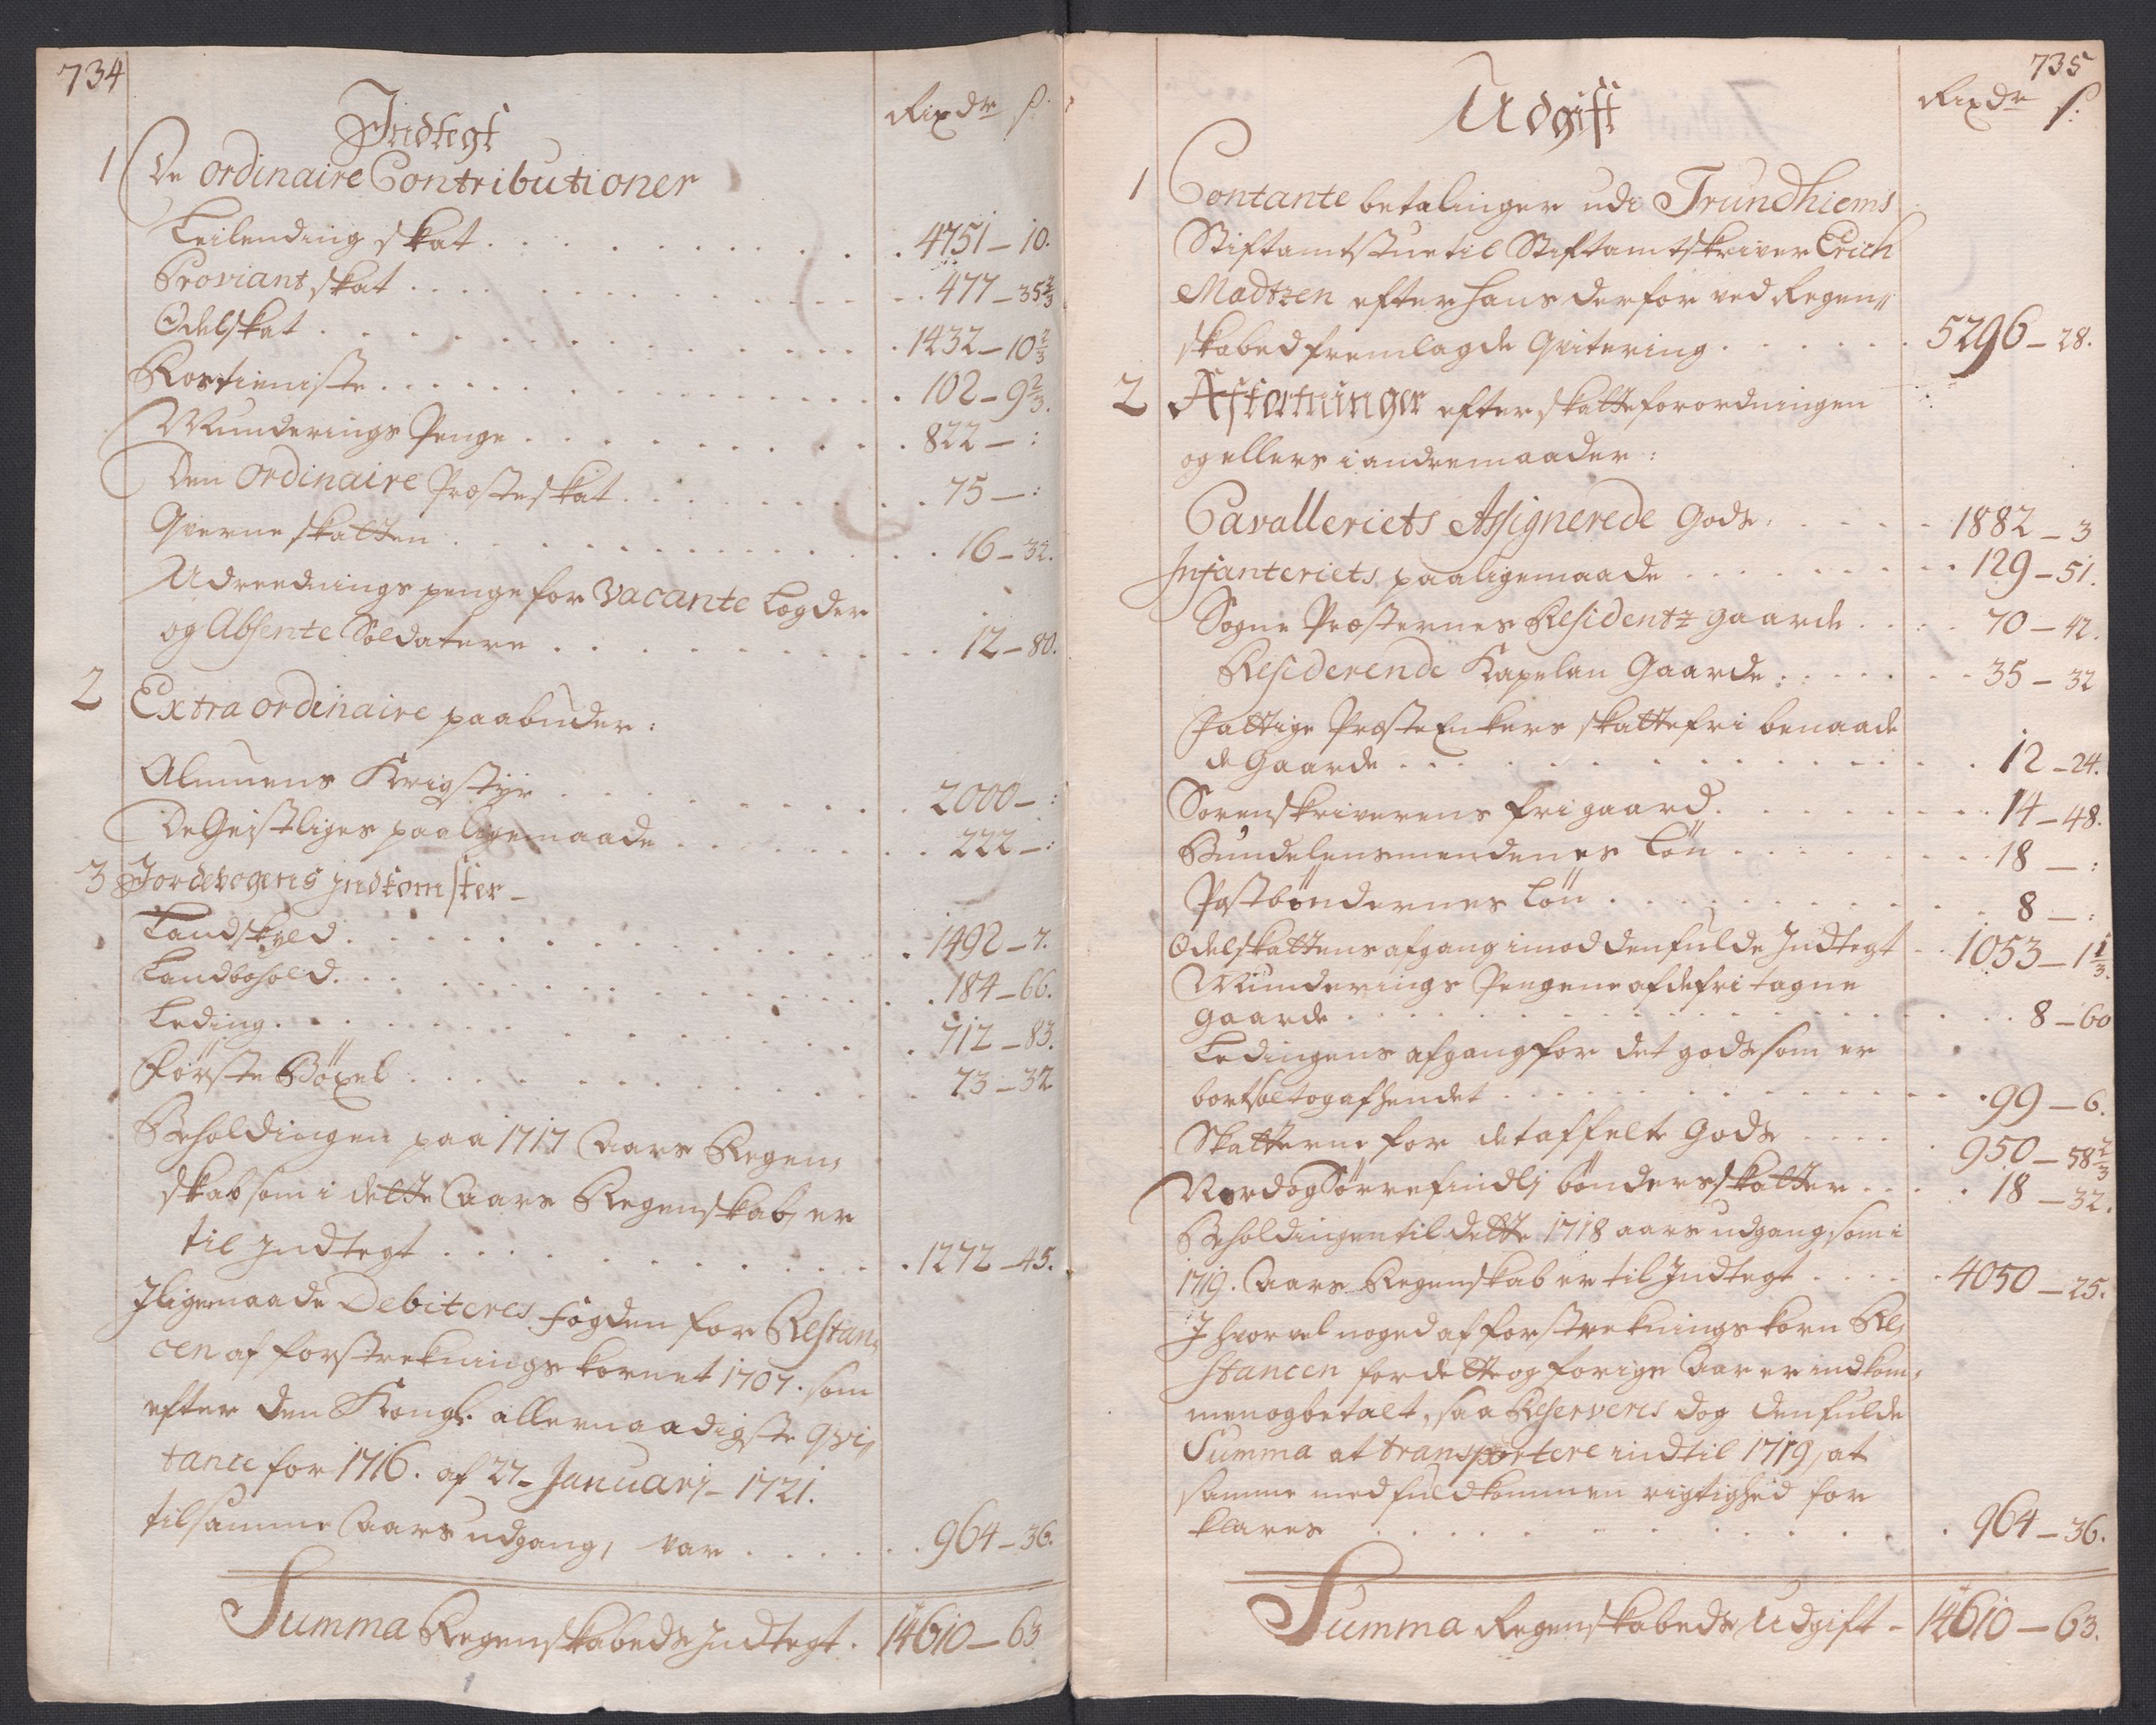 734
Indtegt
Rixdr ß:
1 De ordinaire Contributioner
Leilending skat . . . 4751 – 10.
Proviant skat . . . 477 – 35 2/3
Odelskat . . . 1432 – 10 2/3
Rostieniste . . . 102 – 9 2/3.
Munderings Penge . . . 822 – :
Den Ordinaire Præste skat . . . 75 – :
Qverne skatten . . . 16 – 32.
Udreednings penge for Vacante Legder
og Absente Soldatere . . . 12 – 80.
2 Extra ordinaire paabuder:
Almuens Krigstyr . . . 2000 – :
De Geistliges paa ligemaade . . . 222 – :
3 Jordebogens Indkomster –
Landskyld . . . 1492 – 7.
Landbohold . . . 184 – 66.
Leding . . . 712 – 83.
Første Böxel . . . 73 – 32
Beholdingen paa 1717 Aars Regen,
skab som i dette Aars Regenskab er
til Indtegt . . . 1272 – 45.
Iligemaade Debiteres Fogden for Restan,
cen af forstreknings kornet 1707. som
efter den Kongl. allernaadigste Qvi,
tance for 1716. af 27 – Januarj – 1721.
til samme Aars udgang, var . . . 964 – 36.
Summa Regenskabeds Indtegt . 14610 – 63
735
Udgift
Rixdr ß:
1 Contante betalinger udi Trundhiems
Stiftamtstue til Stiftamtskriver Erich
Madtzen efter hans derfor ved Regen,,
skabed fremlagde Qvitering . . . 5296 – 28.
2 Afkortninger efter skatte forordningen
og ellers i andre maader:
Cavalleriets Assignerede Gods . . . 1882 – 3
Infanteriets paa ligemaade . . . 129 – 51.
Sogne Præsternes Residentz gaarde . . . 70 – 42.
Residerende Kapelan Gaarde . . . 35 – 32
Fattige Præste Enkers skattefri benaade
de Gaarde . . . 12 – 24.
Sorenskriverens fri gaard . . . 14 – 48.
Bundelensmendenes Lön . . . 18 – :
Postböndernes Lön . . . 8 – :
Odelskattens afgang imod den fulde Indtegt . . 1053 – 1 1/3.
Munderings Pengene af de fritagne
Gaarde . . . 8 – 60
Ledingens afgang for det gods som er
bortsolt og afhendet . . . 99 – 6.
Skatterne for det affelte Gods . . . 950 – 58 2/3
Nord og Sörrefindlj bönders skatter . . . 18 – 32.
Beholdingen til dette 1718 aars udgang, som i
1719. Aars Regenskab er til Indtegt . . . 4050 – 25.
I hvorvel noged af forstreknings korn Re,
stancen for dette og forige Aar er indkom,
men og betalt, saa Reserveres dog den fulde
Summa at transportere indtil 1719, at
samme med fuldkommen rigtighed for
klares . . . 964 – 36.
Summa Regenskabeds Udgift – 14610 – 63.